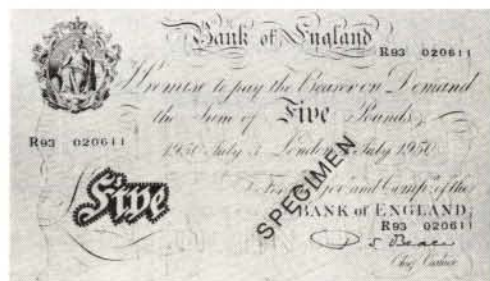 Bank of England
R93 020611
I Promise to pay the Bearer on Demand
the Sum of Five Pounds
R93 020611
1950 July 3 London 3 July 1950
For the Gov.r and Comp.a of the
BANK of ENGLAND
R93 020611
Five
P S Beale
Chief Cashier
SPECIMEN